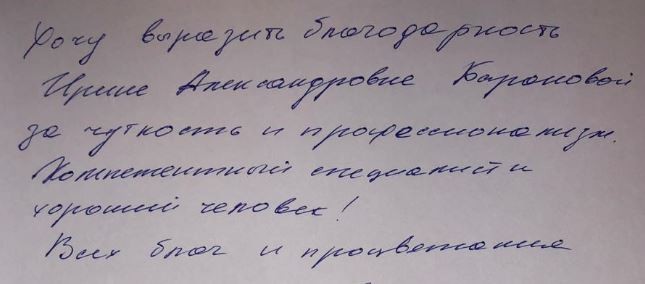 Хочу выразить благодарность
Ирине Александровне Барановой
за чуткость и профессионализм.
Компетентный специалист и
хороший человек!
Всех благ и процветания